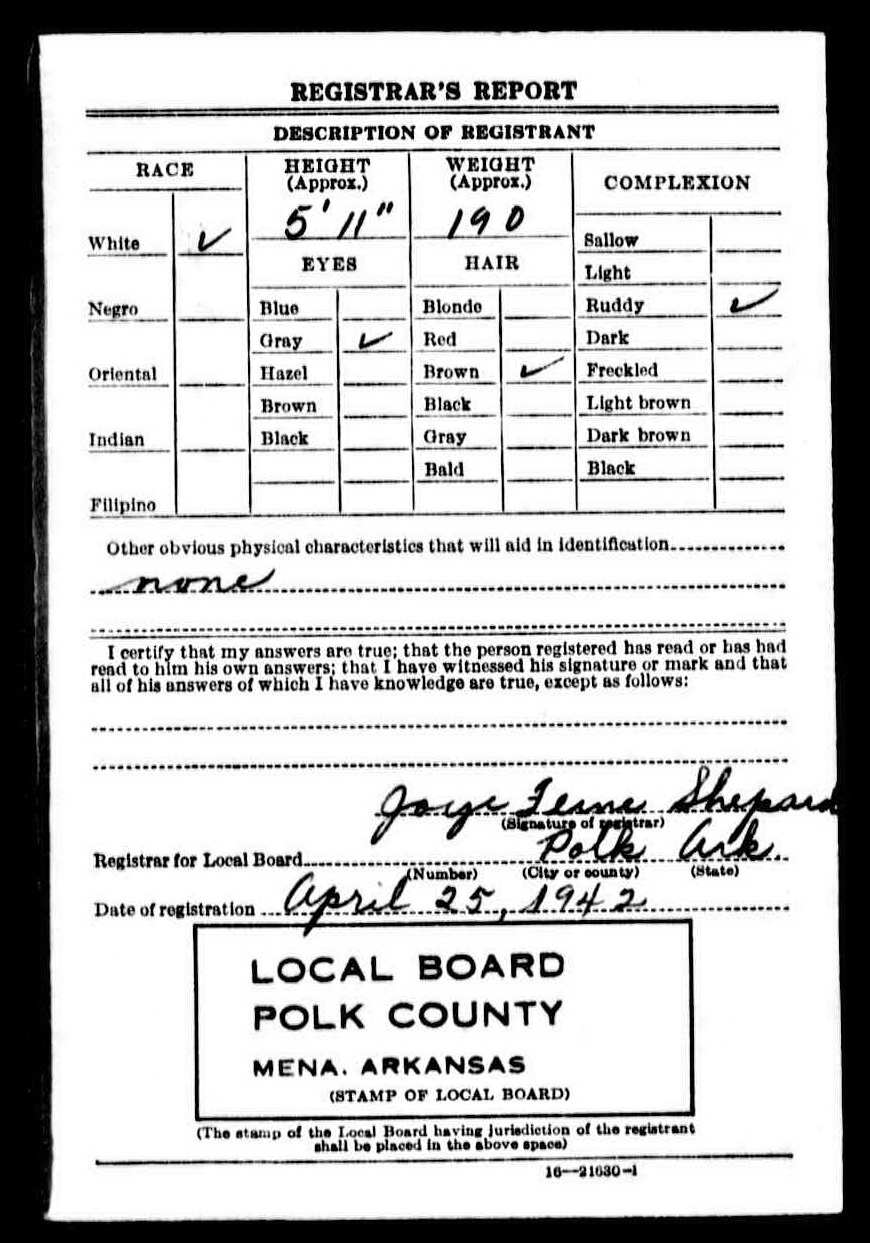 REGISTRAR'S REPORT
DESCRIPTION OF REGISTRANT
RACE
HEIGHT (Approx.)
WEIGHT (Approx.)
COMPLEXION
5' 11"
190
White ✓
EYES
HAIR
Sallow
Light
Negro
Blue
Blonde
Ruddy ✓
Gray ✓
Red
Dark
Oriental
Hazel
Brown ✓
Freckled
Brown
Black
Light brown
Indian
Black
Gray
Dark brown
Bald
Black
Filipino
Other obvious physical characteristics that will aid in identification
none
I certify that my answers are true; that the person registered has read or has had
read to him his own answers; that I have witnessed his signature or mark and that
all of his answers of which I have knowledge are true, except as follows:
Shepard
(Signature of registrar)
Registrar for Local Board Polk Ark.
(Number) (City or county) (State)
Date of registration April 25, 1942
LOCAL BOARD
POLK COUNTY
MENA. ARKANSAS
(STAMP OF LOCAL BOARD)
(The stamp of the Local Board having jurisdiction of the registrant
shall be placed in the above space)
16—21630-1